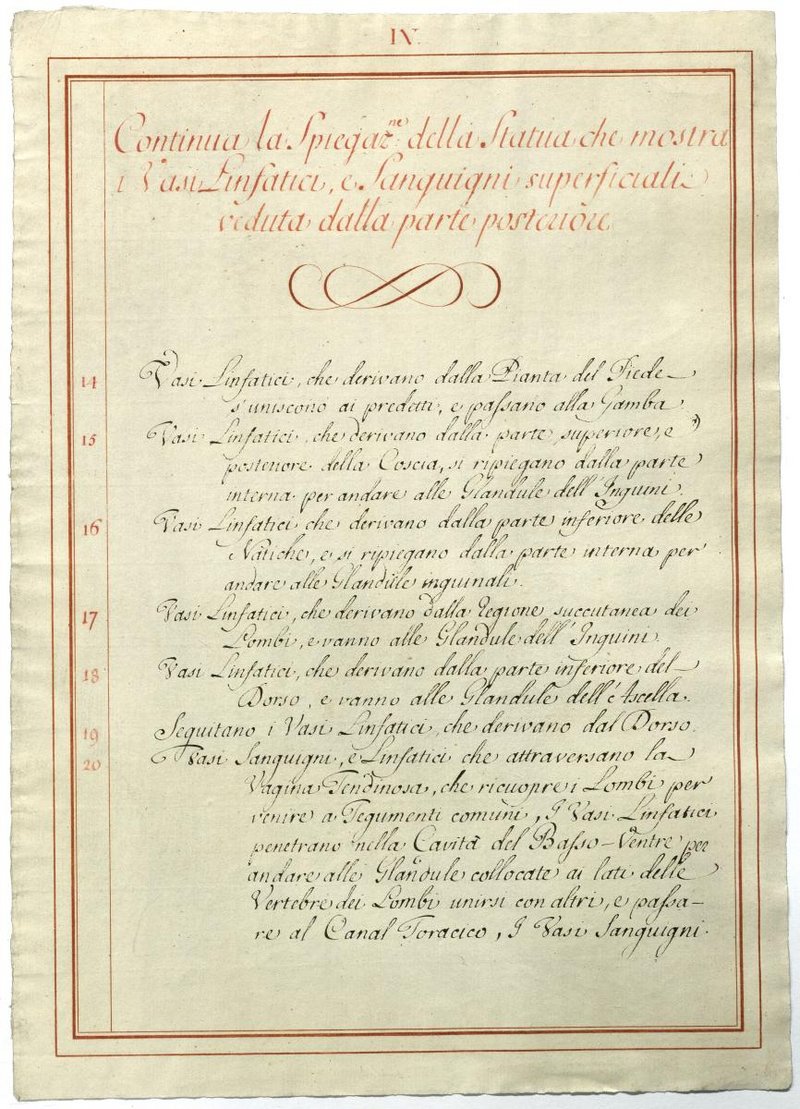 IX
Continua la Spiegaz.ne della Statua che mostra
i Vasi Linfatici, e Sanguigni superficiali
veduta dalla parte posteriore
14 Vasi Linfatici, che derivano dalla Pianta del Piede
s'uniscono ai predetti, e passano alla Gamba.
15 Vasi Linfatici, che derivano dalla parte superiore, e
posteriore della Coscia, si ripiegano dalla parte
interna per andare alle Glandule dell'Inguini.
16 Vasi Linfatici che derivano dalla parte inferiore delle
Natiche, e si ripiegano dalla parte interna per
andare alle Glandule inguinali.
17 Vasi Linfatici, che derivano dalla Regione succutanea dei
Lombi, e vanno alle Glandule dell'Inguini.
18 Vasi Linfatici, che derivano dalla parte inferiore del
Dorso, e vanno alle Glandule dell'Ascella.
19 Seguitano i Vasi Linfatici, che derivano dal Dorso.
20 Vasi Sanguigni, e Linfatici che attraversano la
Vagina Tendinosa, che ricuopre i Lombi per
venire a Tegumenti comuni, I Vasi Linfatici
penetrano nella Cavità del Basso-Ventre per
andare alle Glandule collocate ai lati delle
Vertebre dei Lombi unirsi con altri, e passa-
re al Canal Toracico, I Vasi Sanguigni.